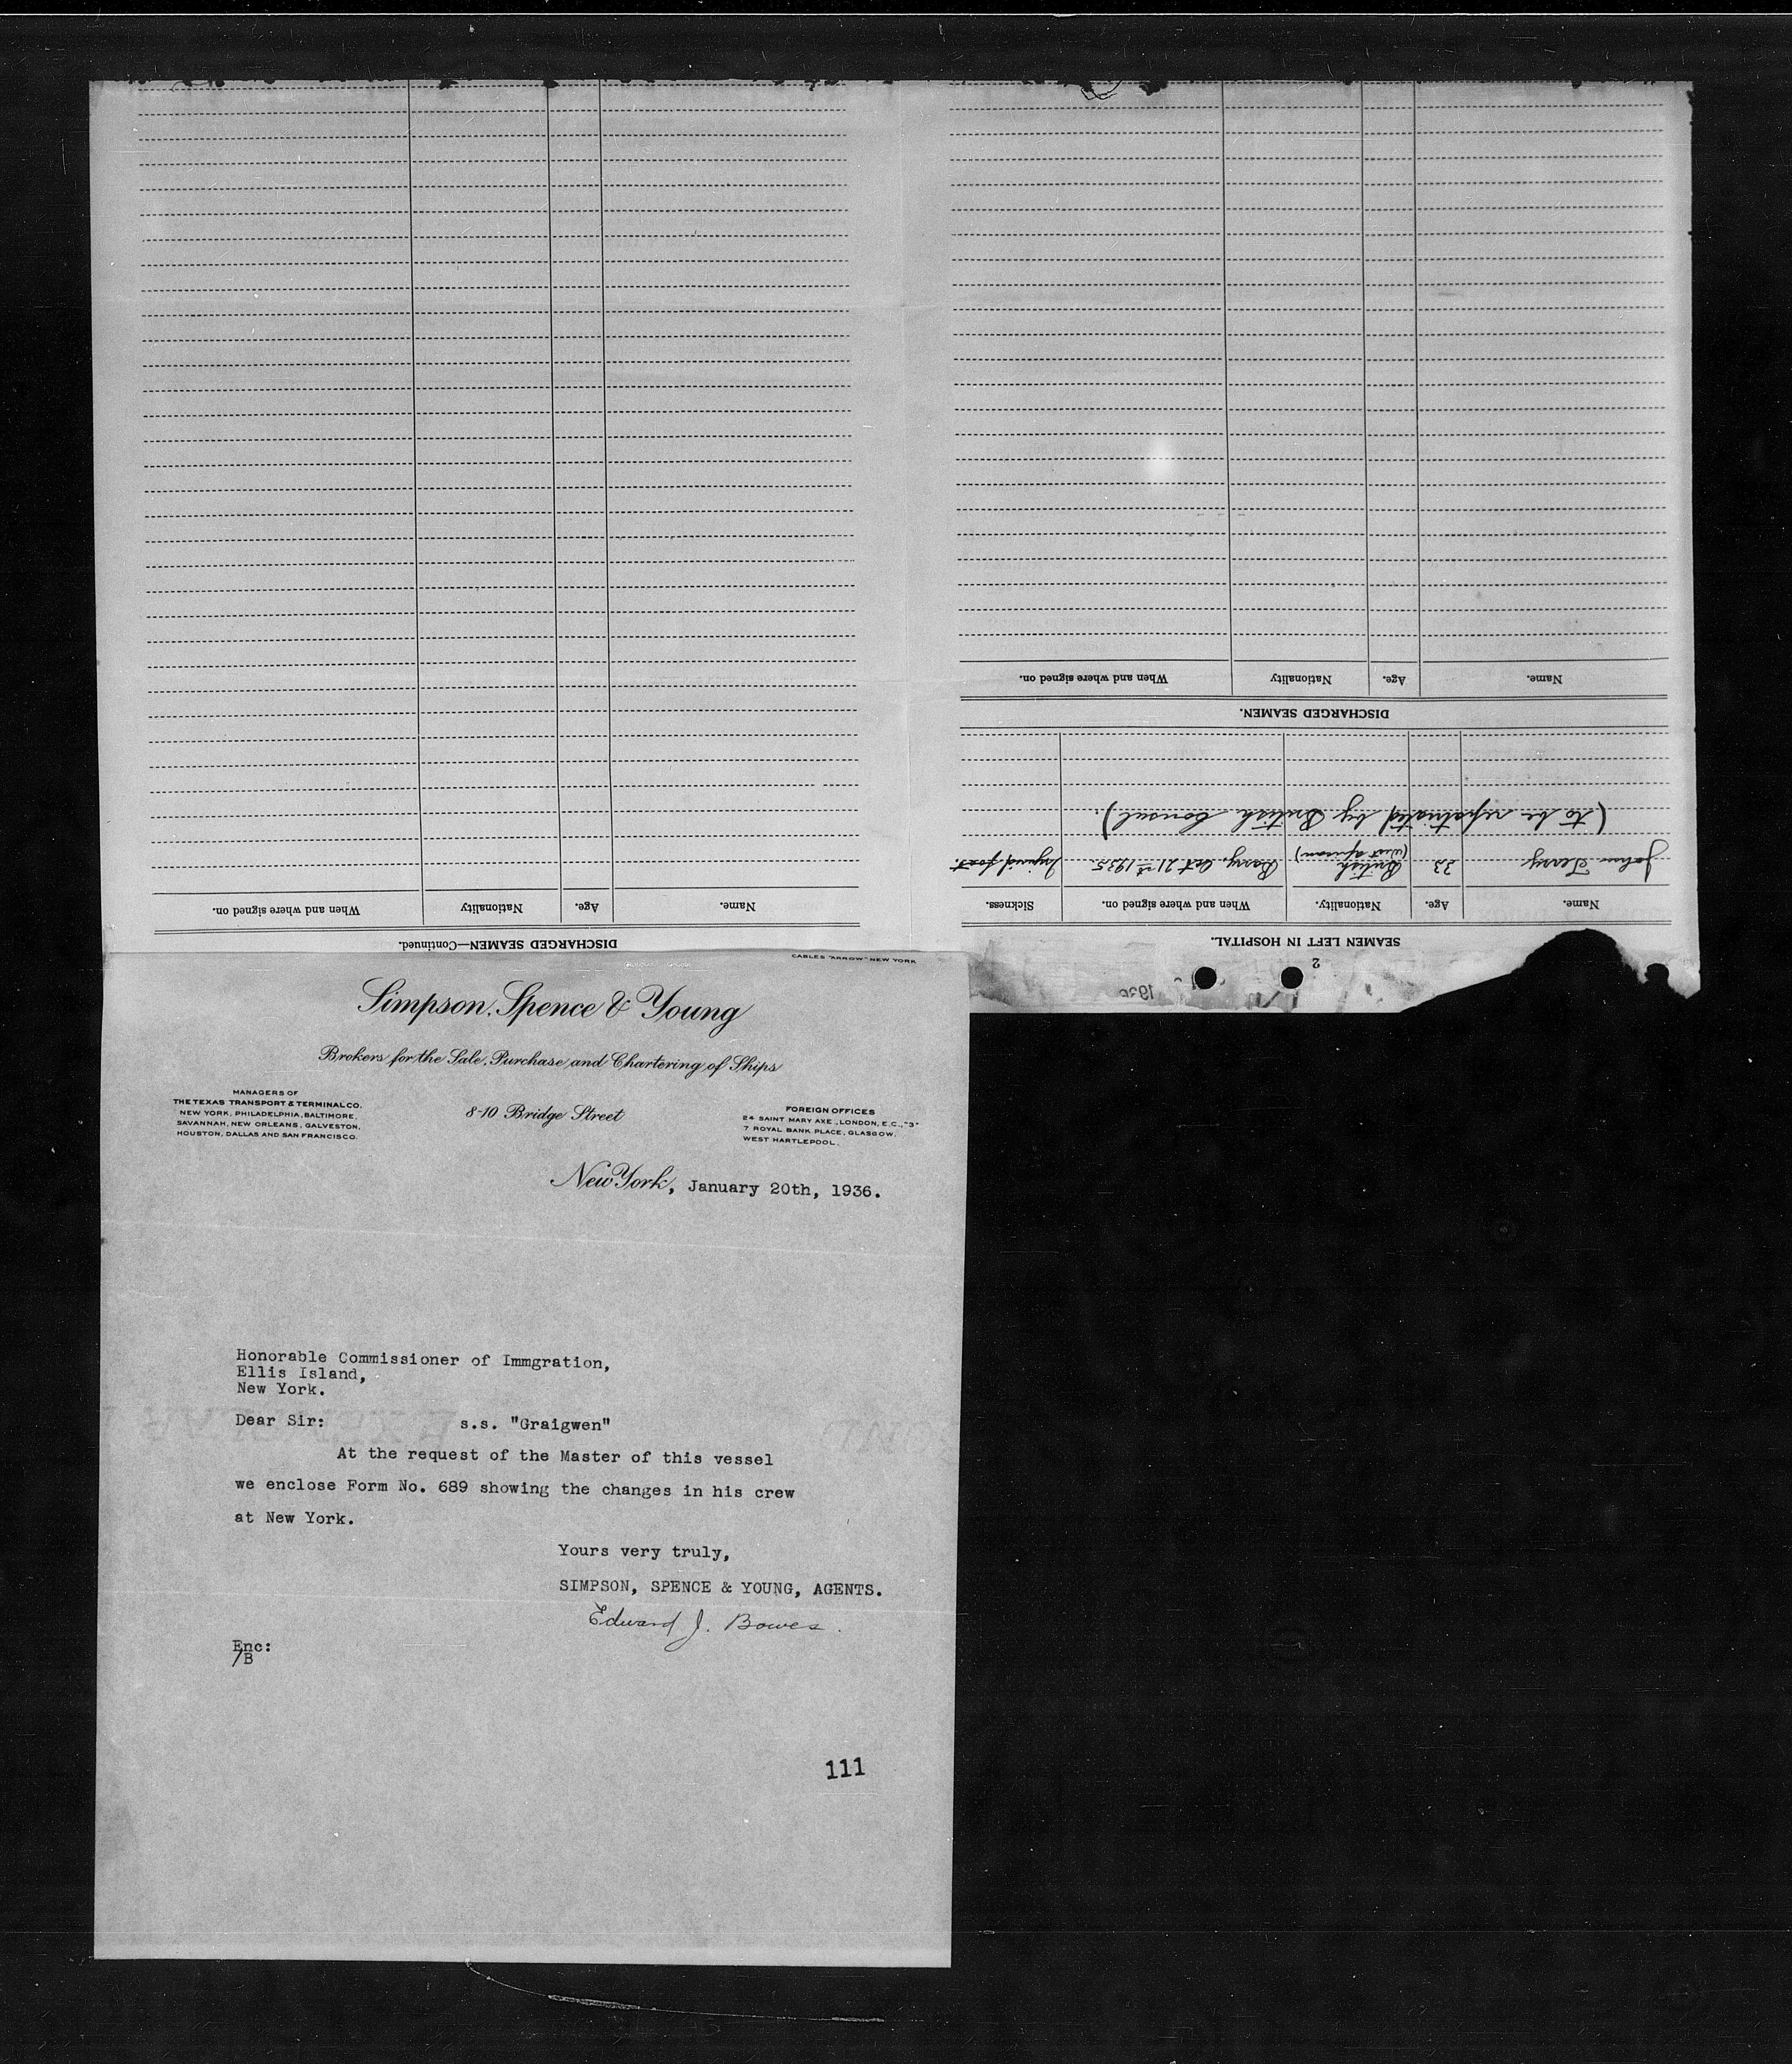 2
1936
SEAMEN LEFT IN HOSPITAL.
Name. Age. Nationality. When and where signed on. Sickness.
John Terry 33 British (West African) Barry, Oct 21st 1935. Injured foot.
(to be repatriated by British Consul.)
DISCHARGED SEAMEN.
Name. Age. Nationality When and where signed on.
DISCHARGED SEAMEN—Continued.
Name. Age. Nationality When and where signed on.
CABLES "ARROW" NEW YORK
Simpson, Spence & Young
Brokers for the Sale, Purchase and Chartering of Ships
MANAGERS OF
THE TEXAS TRANSPORT & TERMINAL CO.
NEW YORK, PHILADELPHIA, BALTIMORE,
SAVANNAH, NEW ORLEANS, GALVESTON,
HOUSTON, DALLAS AND SAN FRANCISCO.
8-10 Bridge Street
FOREIGN OFFICES
24 SAINT MARY AXE., LONDON, E.C., "3"
7 ROYAL BANK PLACE, GLASGOW,
WEST HARTLEPOOL.
New York, January 20th, 1936.
Honorable Commissioner of Immgration,
Ellis Island,
New York.
Dear Sir: s.s. "Graigwen"
At the request of the Master of this vessel
we enclose Form No. 689 showing the changes in his crew
at New York.
Yours very truly,
SIMPSON, SPENCE & YOUNG, AGENTS.
Edward J. Bowes.
Enc:
/B
111